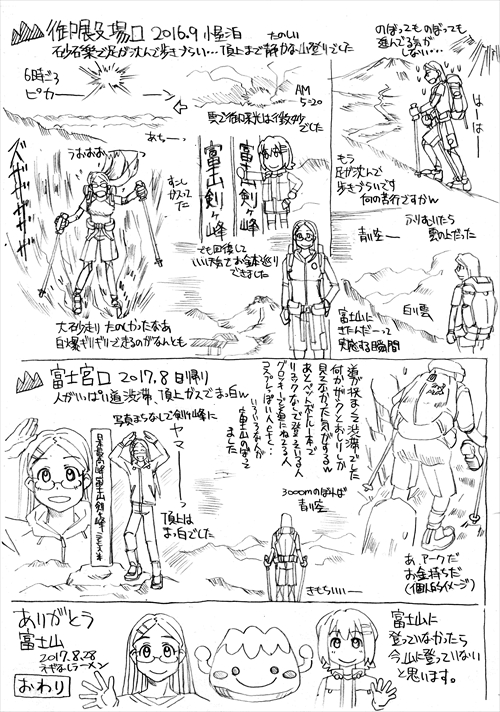 御殿場口 2016.9 小屋泊 たのしい
砂砂礫で足が沈んで歩きづらい…頂上まで静かな山登りでした
のぼってものぼっても
進んでる気が
しない…
6時ごろ
ピカー
AM
5:20
雲で御来光は微妙
でした
はーはー
あちーっ
うおおおお
ズザザザザザ
すこし
ガスって
た
富士山剣ヶ峰
富士山剣ヶ峰
でも回復して
いい天気でお鉢巡り
できました
もう
足が沈んで
歩きづらいです
何の苦行ですかw
ふりむいたら
雲の上だった
青い空ー
白い雲
富士山に
きたんだーって
実感する瞬間
大砂走りたのしかったなあ
自爆ギリギリできるのがなんとも
富士宮口 2017.8 日帰り
人がいっぱい道渋滞、頂上ガスでまっ白w
写真まちなしで剣ヶ峰に
ヤマーーーっ
日本最高峰富士山剣ヶ峰
頂上は
まっ白でした
道が狭くて渋滞でした
何かザックとおしりしか
見てなかった気がするw
あとペットボトル1本で
リュックなしで登ってる人
グロッキーで道にねてる人
コスプレっぽい人とか…
いろいろな人が
富士山の中って
ました
3000mのぼれば
青い空
きもちいいー
あ、アークだ
お金持ちだ
(個人的イメージ)
ありがとう
富士山
2017.8.28
おわり
富士山に
登っていなかったら
今山に登っていない
と思います。